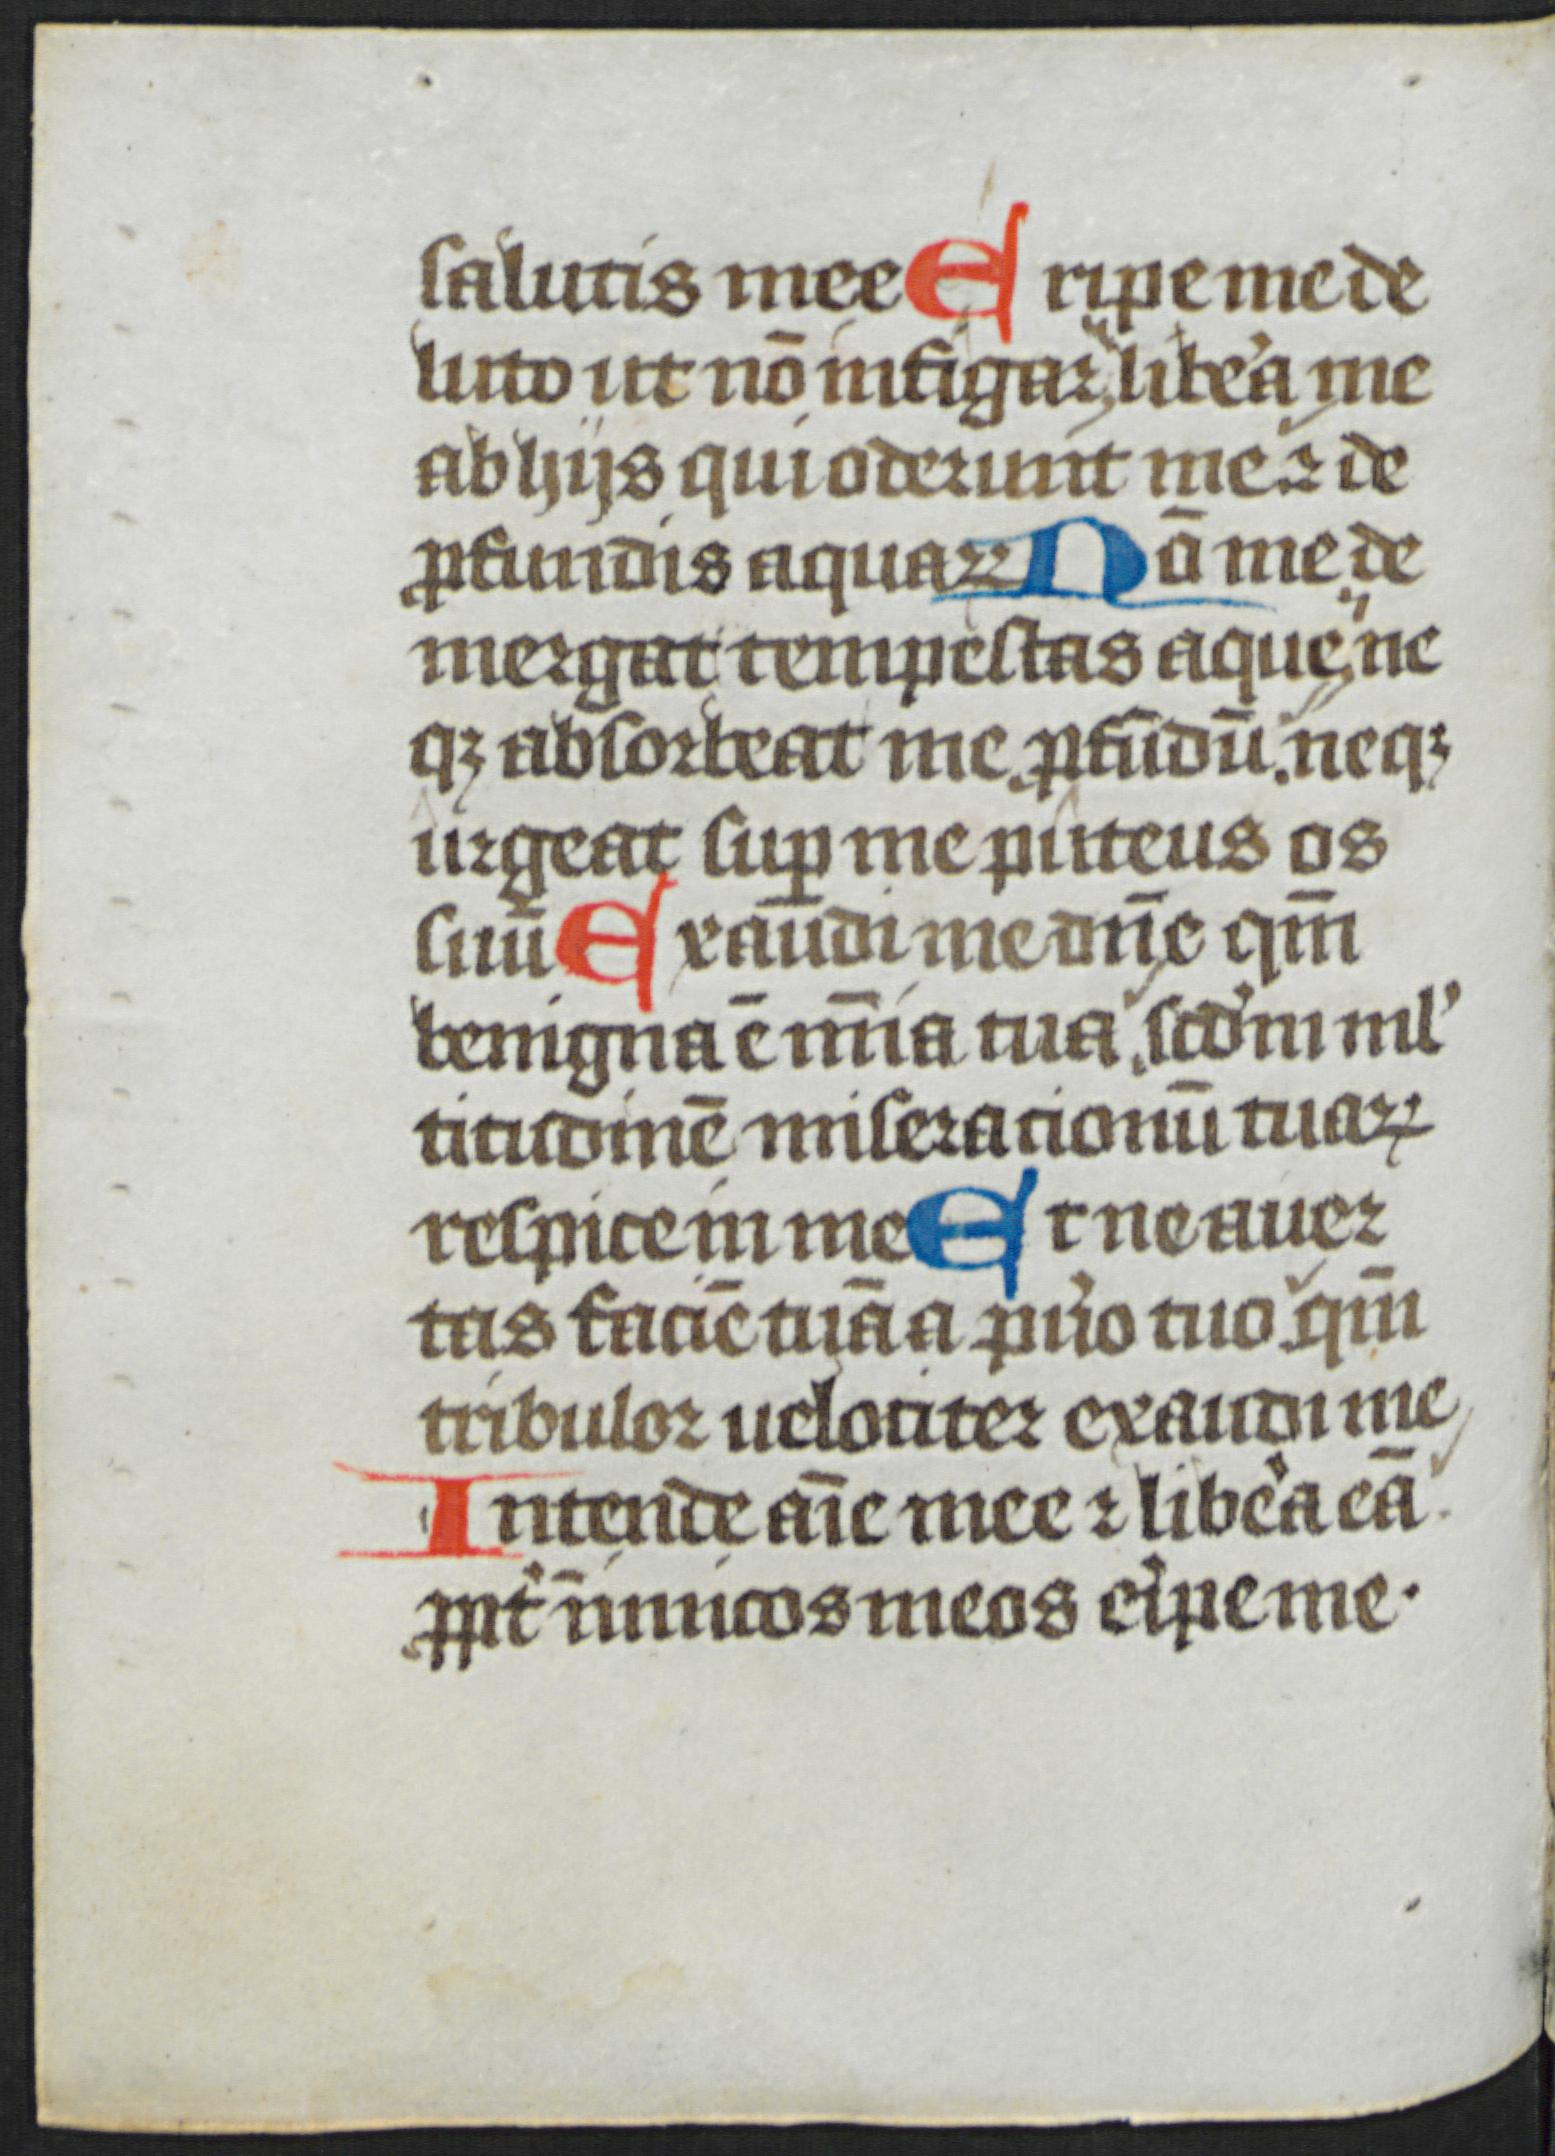 salutis mee Eripe me de
luto ut nō infigar libe᾿a me
ab hijs qui oderunt me ⁊ de
ꝓfundis aquaꝝ Nō me de
mergat tempestas aque ne
qꝫ absorbeat me ꝓfūdū. neqꝫ
urgeat suꝑ me puteus os
suū Exaūdi me dn̄e qm̄
benigna ē mīa tua. scd᾿m ml᾿
titudinē miseracionū tuaꝝ
respice in me Et ne auer
tas faciē tuā a pu᾿o tuo qm̄
tribulor uelociter exaudi me
Intende aīe mee ⁊ libe᾿a eā.
ꝓpt᾿ īnimicos meos eͥpe me.